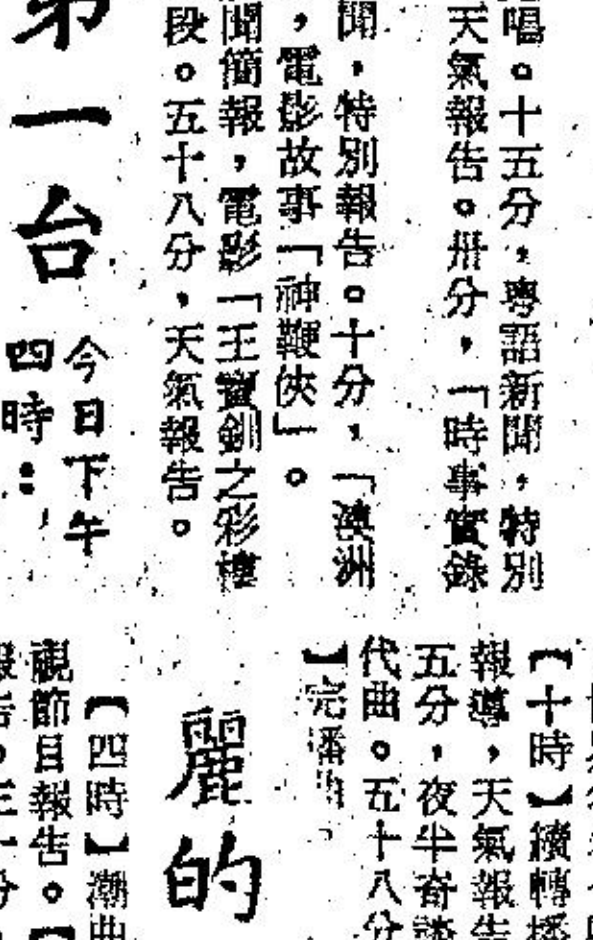 唱。十五分,粵語新聞,特別
天氣報告。卅分,「時事實錄
聞,特別報告。十分,「澳洲
,電影故事「神鞭俠」。
聞簡報,電影「王寶釧之彩樓
段。五十八分,天氣報告。
第一台
今日下午
四時:
【十時】續轉播
報導,天氣報告
五分,夜半奇談
代曲。五十八分
】完播曲
麗的
【四時】潮曲
視節目報告。【
報告。三十分